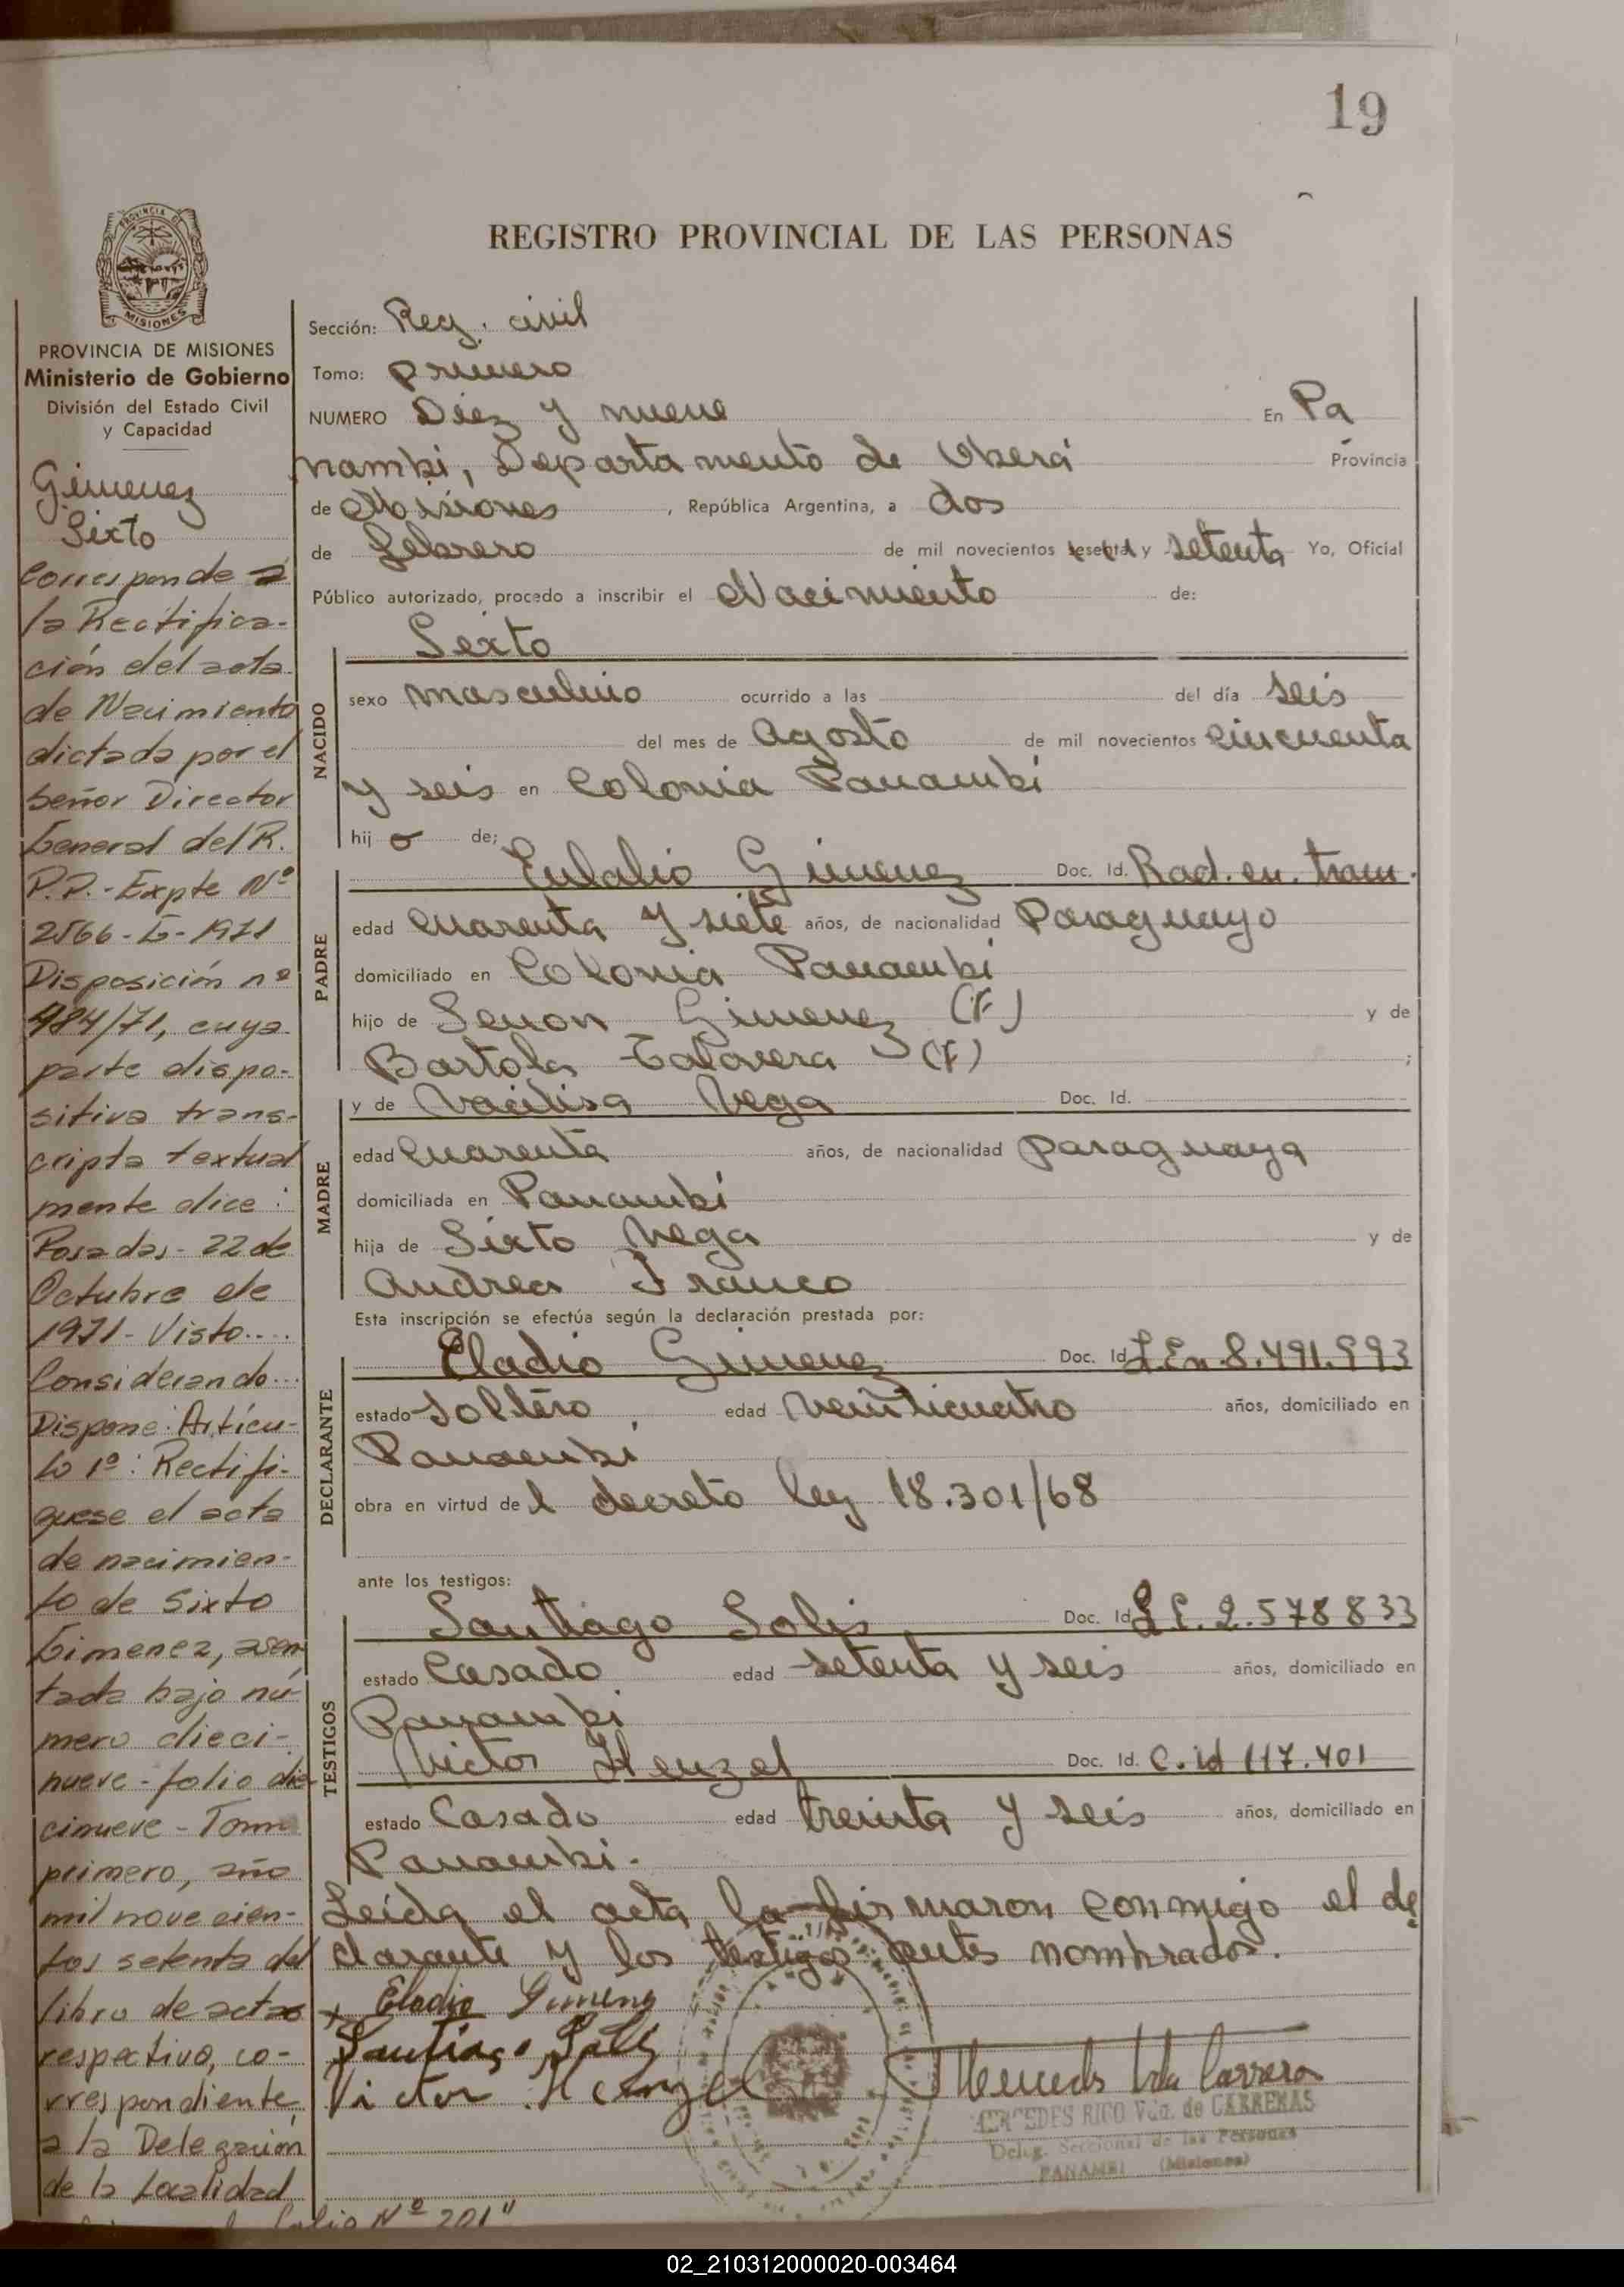 19
REGISTRO PROVINCIAL DE LAS PERSONAS
PROVINCIA DE
MISIONES
PROVINCIA DE MISIONES
Ministerio de Gobierno
División del Estado Civil
y Capacidad
Gimenez
Sixto
Corresponde a
la Rectifica-
ción del acta
de Nacimiento
dictada por el
Señor Director
General del R.
P.P.- Expte Nº
2566-G-1971
Disposición nº
984/71, cuya
parte dispo-
sitiva trans-
cripta textual
mente dice:
Posadas - 22 de
Octubre de
1971 - Visto....
Considerando...
Dispone: Artícu-
lo 1º: Rectifi-
quese el acta
de nacimien-
to de Sixto
Gimenez, asen
tada bajo nú-
mero dieci-
nueve - folio die
cinueve - Tomo
primero, año
mil nove cien-
tos setenta del
libro de actas
respectivo, co-
rrespondiente
a la Delegación
de la Localidad
folio Nº 201"
Sección: Reg. civil
Tomo: primero
NUMERO Diez y nueve En Pa
nambi, Departamento de Oberá Provincia
de Misiones, República Argentina, a dos
de Febrero de mil novecientos sesenta y setenta Yo, Oficial
Público autorizado, procedo a inscribir el Nacimiento de:
NACIDO
Sexto
sexo masculino ocurrido a las del día seis
del mes de Agosto de mil novecientos cincuenta
y seis en Colonia Panambí
hijo de:
PADRE
Eulalio Gimenez Doc. Id. Rad. en. tram.
edad cuarenta y siete años, de nacionalidad Paraguayo
domiciliado en Colonia Panambí
hijo de Senon Gimenez (F) y de
Bartola Talavera (F) ;
MADRE
y de Vega Doc. Id.
edad cuarenta años, de nacionalidad paraguaya
domiciliada en Panambí
hija de Sixto Vega y de
Andrea Franco
Esta inscripción se efectúa según la declaración prestada por:
DECLARANTE
Eladio Gimenez Doc. Id. L.En. 8.491.993
estado soltero edad veinticuatro años, domiciliado en
Panambí
obra en virtud del decreto ley 18.301/68
ante los testigos:
TESTIGOS
Santiago Solis Doc. Id. 2.578833
estado Casado edad setenta y seis años, domiciliado en
Panambi
Victor Henzel Doc. Id. C.id 117.401
estado Casado edad treinta y seis años, domiciliado en
Panambi.
Leída el acta la firmaron conmigo el de
clarante y los testigos antes nombrados.
x Eladio Gimenez
Santiago Solis
Victor Henzel
MERCEDES RICO Vda. de CARRERAS
Deleg. Seccional de las Personas
PANAMBI (Misiones)
02_210312000020-003464